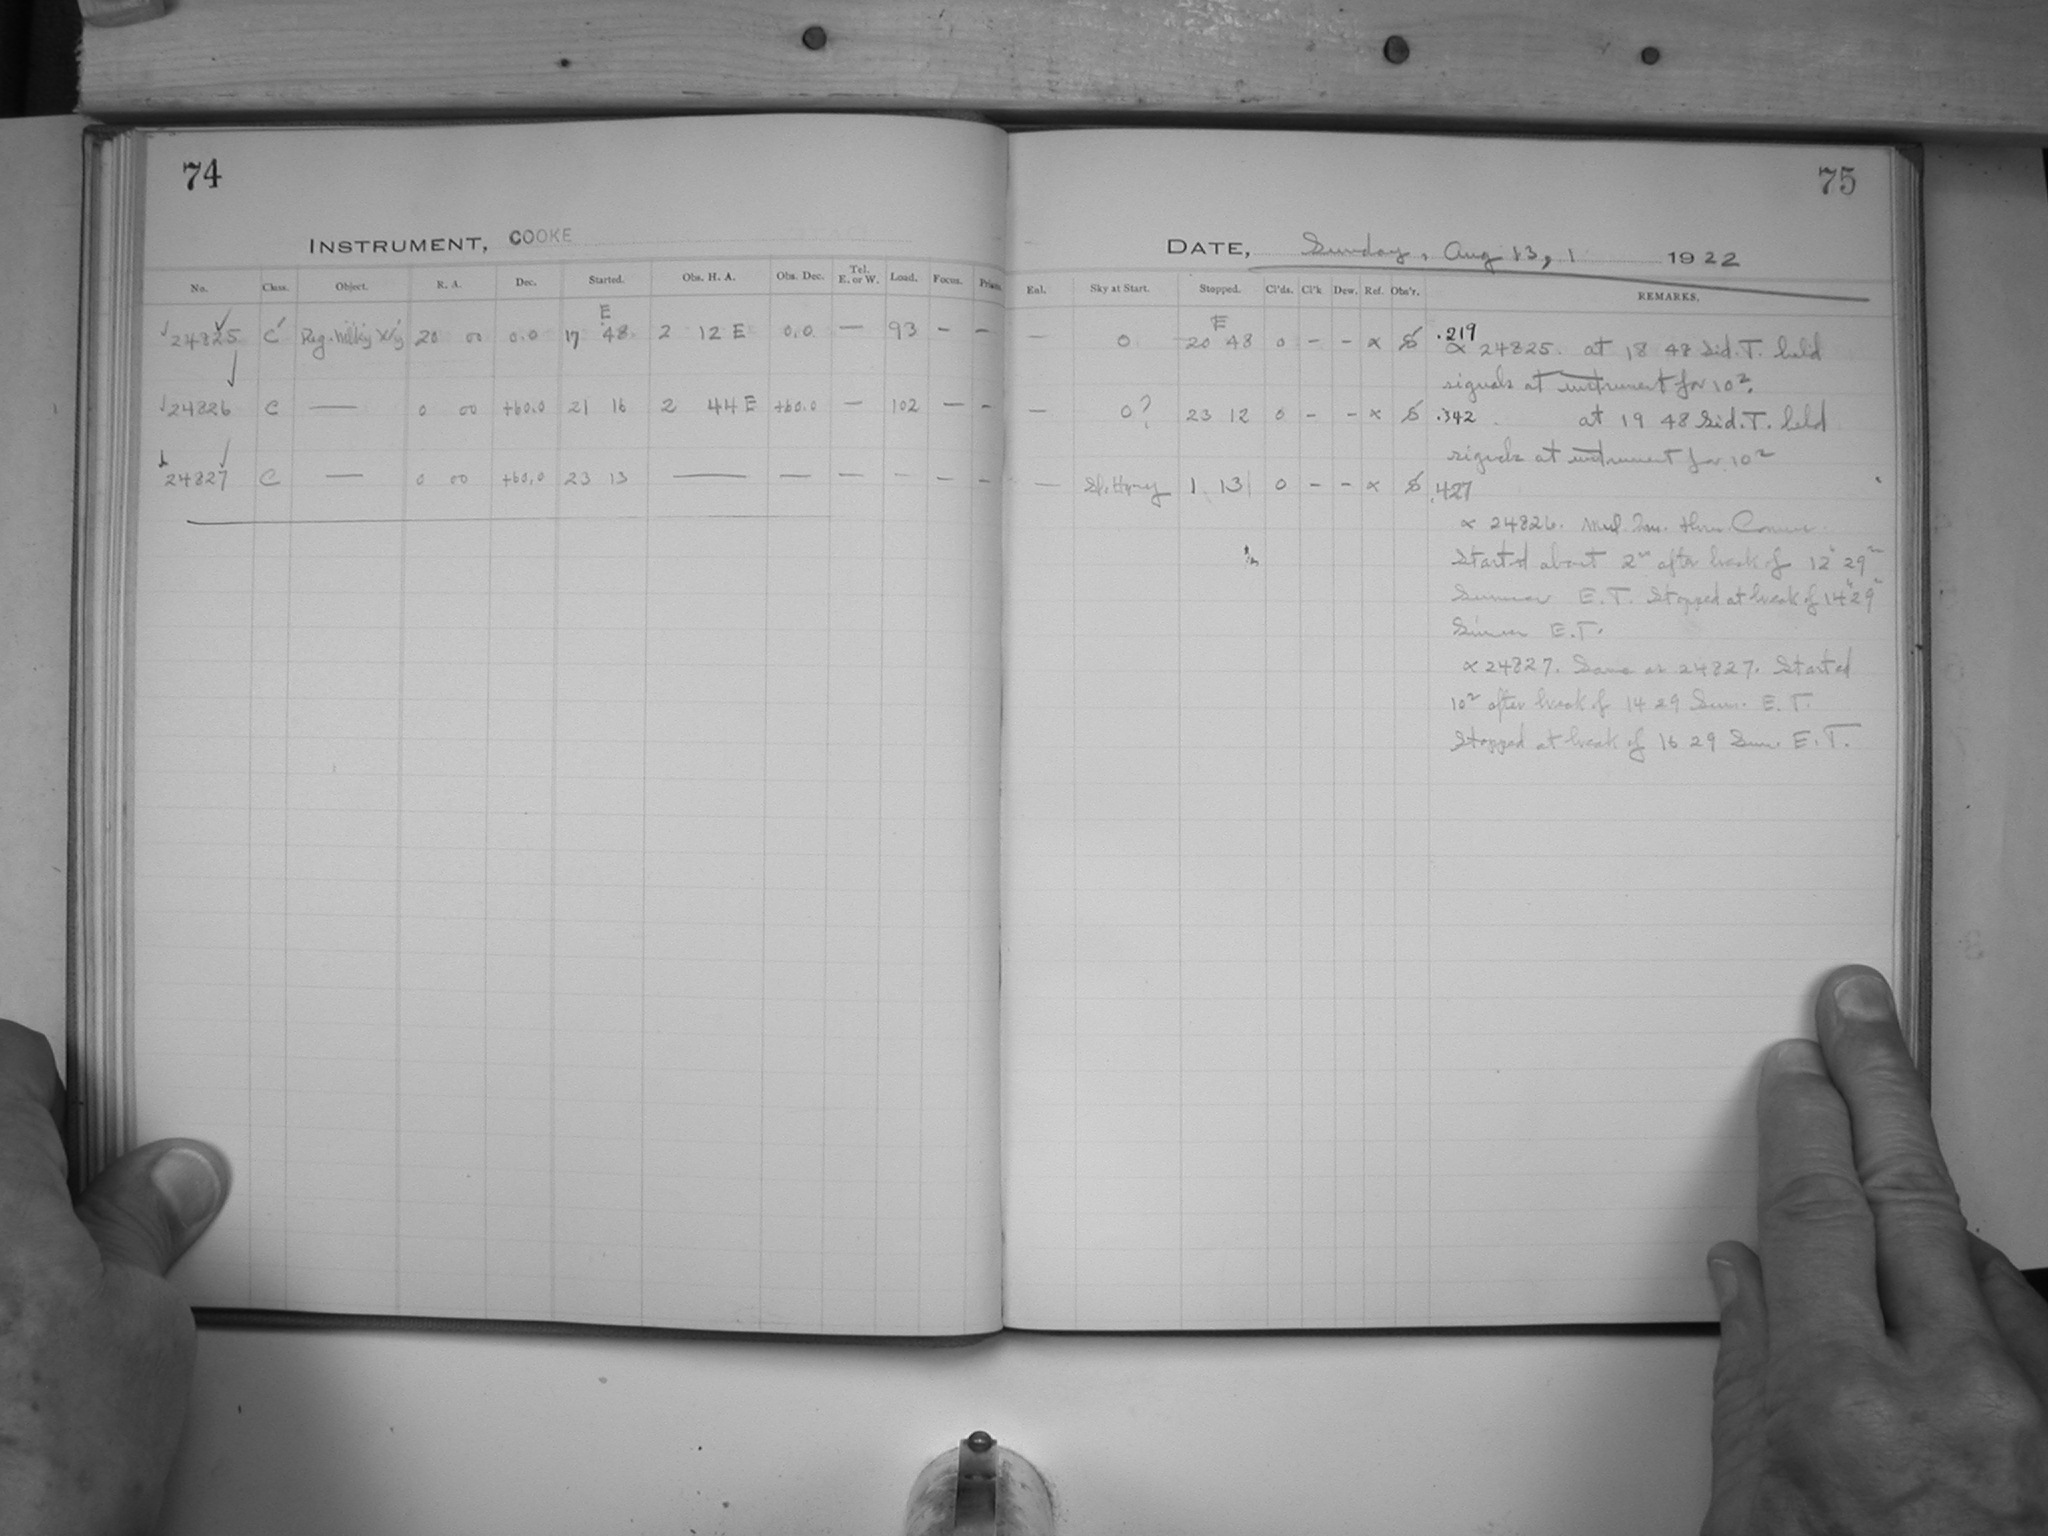 74
INSTRUMENT, COOKE
No. Class. Object. R. A. Dec. Started. Obs. H. A. Obs. Dec. Tel. E. or W. Load. Focus. Prisms
E
24825 C Reg. Milky Wy 20 00 0.0 17 48 2 12 E 0.0 — 93 – –
24826 C — 0 00 +60.0 21 16 2 44 E +60.0 — 102 — –
24827 C — 0 00 +60.0 23 13 — — — — – –
75
DATE, Sunday, Aug 13, 1922
Eal. Sky at Start. Stopped. Cl'ds. Cl'k Dew. Ref. Obs'r. REMARKS.
E
— 0 20 48 0 – – ∝ S .219
∝ 24825. at 18 48 Sid. T. held
signals at instrument for 10ᵐ.
— 0? 23 12 0 – – ∝ S .342 at 19 48 Sid. T. held
signals at instrument for 10ᵐ
— Sl. Hazy 1 13 0 – – ∝ S .427
∝ 24826.
Started about 2ᵐ after break of 12ʰ 29ᵐ
Summer E.T. Stopped at break of 14ʰ 29ᵐ
Summer E.T.
∝ 24827. Same as 24827. Started
10ᵐ after break of 14 29 Sum. E.T.
Stopped at break of 16 29 Sum. E.T.